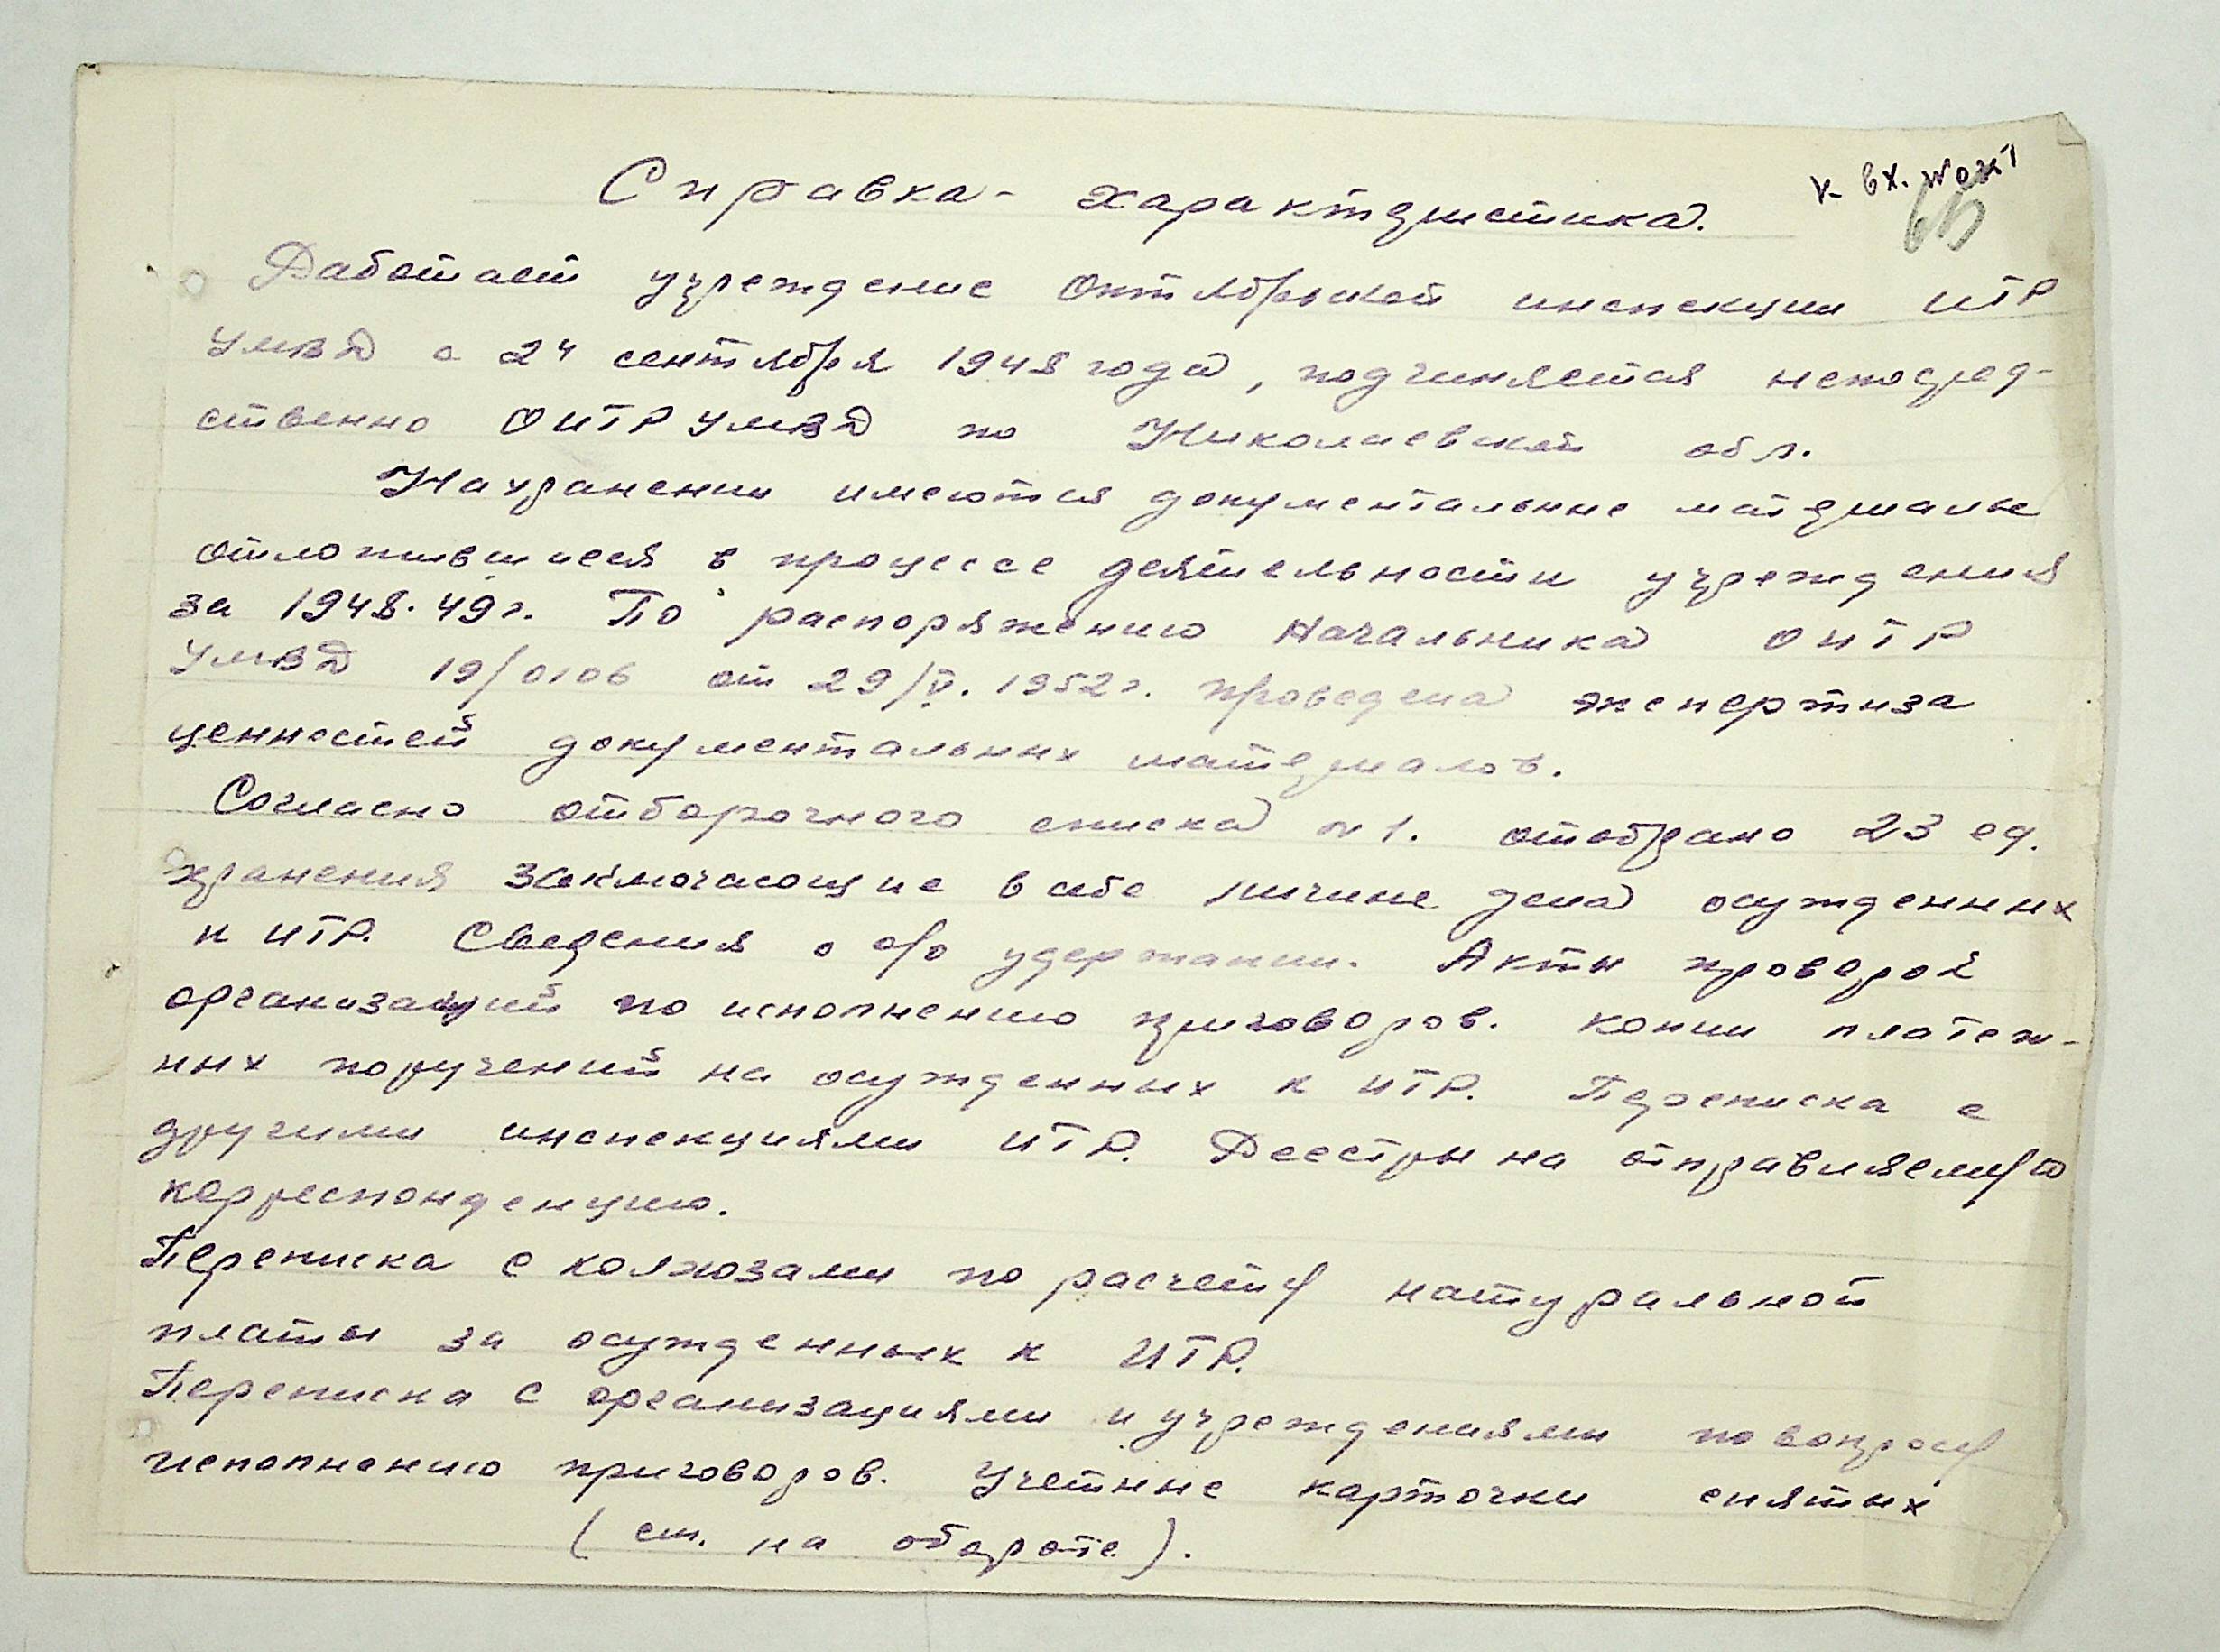 к вх. №
65
Справка - характеристика.
Работает учреждение Октябрьской инспекции ИТР
УМВД с 24 сентября 1948 года, подчиняется непосред-
ственно ОИТР УМВД по Николаевской обл.
На хранении имеются документальные материалы
отложившиеся в процессе деятельности учреждения
за 1948-49г. По распоряжению Начальника ОИТР
УМВД 19/0106 от 29/V. 1952г. проведена экспертиза
ценностей документальных материалов.
Согласно отборочного списка №1. отобрано 23 ед.
хранения заключающие в себе личные дела осужденных
к ИТР. Сведения о о/о удержании. Акты проверок
организаций по исполнению приговоров. Копии платеж-
ных поручений на осужденных к ИТР. Переписка с
другими инспекциями ИТР. Реестры на отправляемую
корреспонденцию.
Переписка с колхозами по расчету натуральной
платы за осужденных к ИТР.
Переписка с организациями и учреждениями по вопросу
исполнению приговоров. Учетные карточки снятых
(см. на обороте).